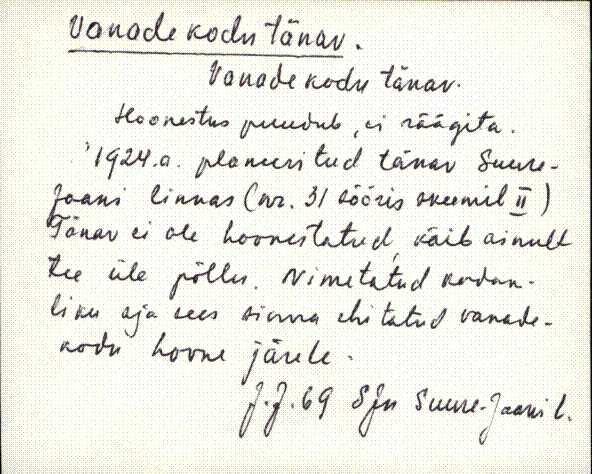 Vanadekodu tänav.
Vanadekodu tänav.
Hoonestus puudub, ei räägita.
1924.a. planeeritud tänav Suure-
Jaani linnas (nr. 31 sõõris skeemil II)
Tänav ei ole hoonestatud, käib ainult
tee üle põllu. Nimetatud kodan-
liku aja sees sinna ehitatud vanade-
kodu hoone järele.
J.J. 69 SJn Suure-Jaani l.